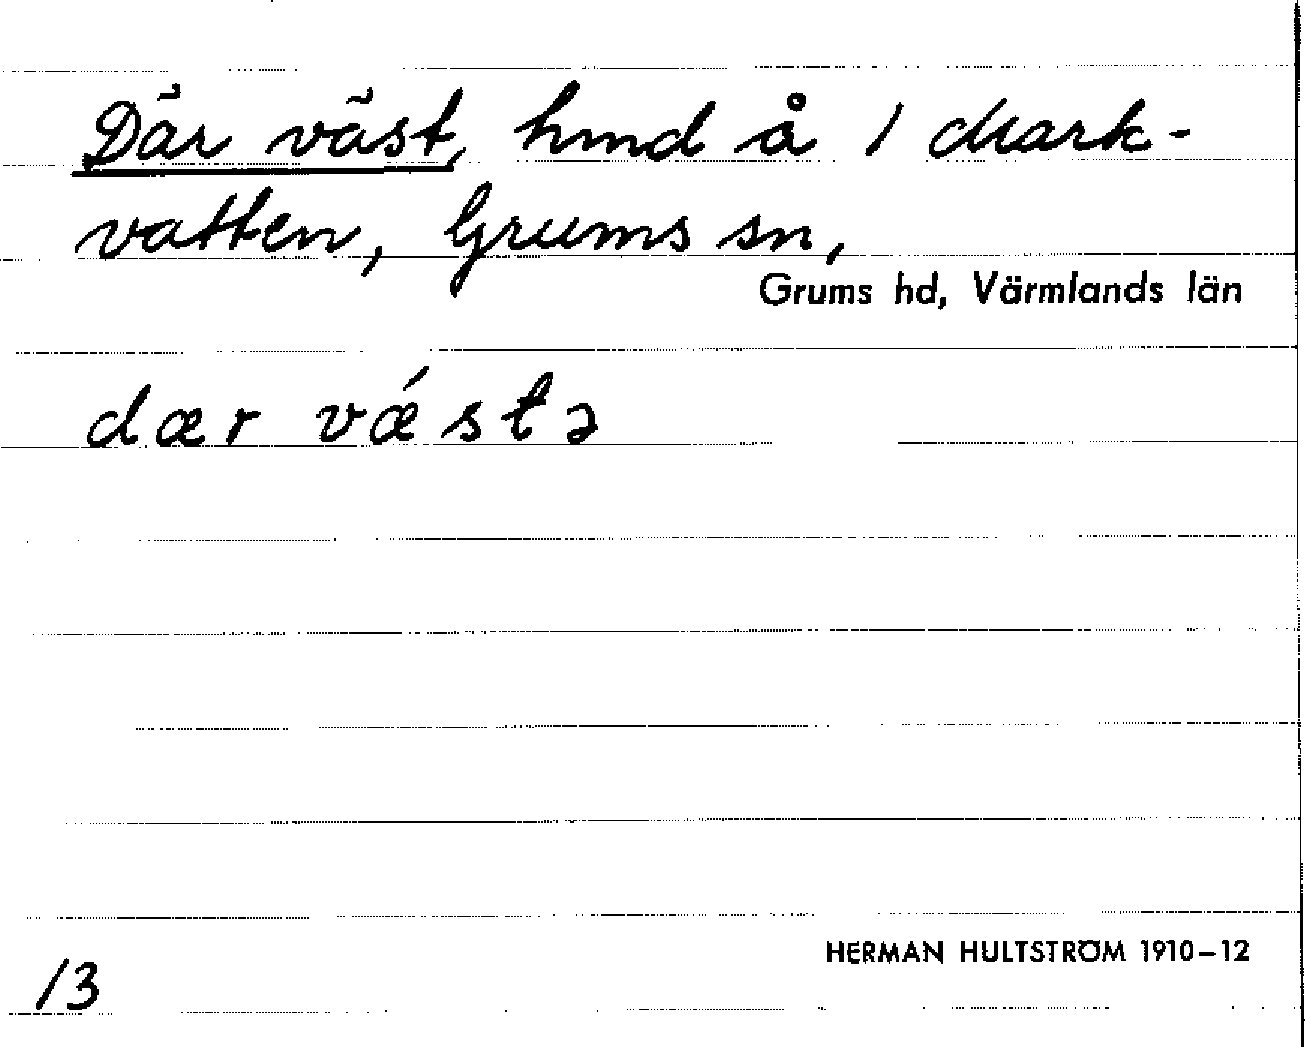 Där väst, hmd å 1 Mark-
vatten, Grums sn,
Grums hd, Värmlands län
dær vǽstə
HERMAN HULTSTRÖM 1910–12
13